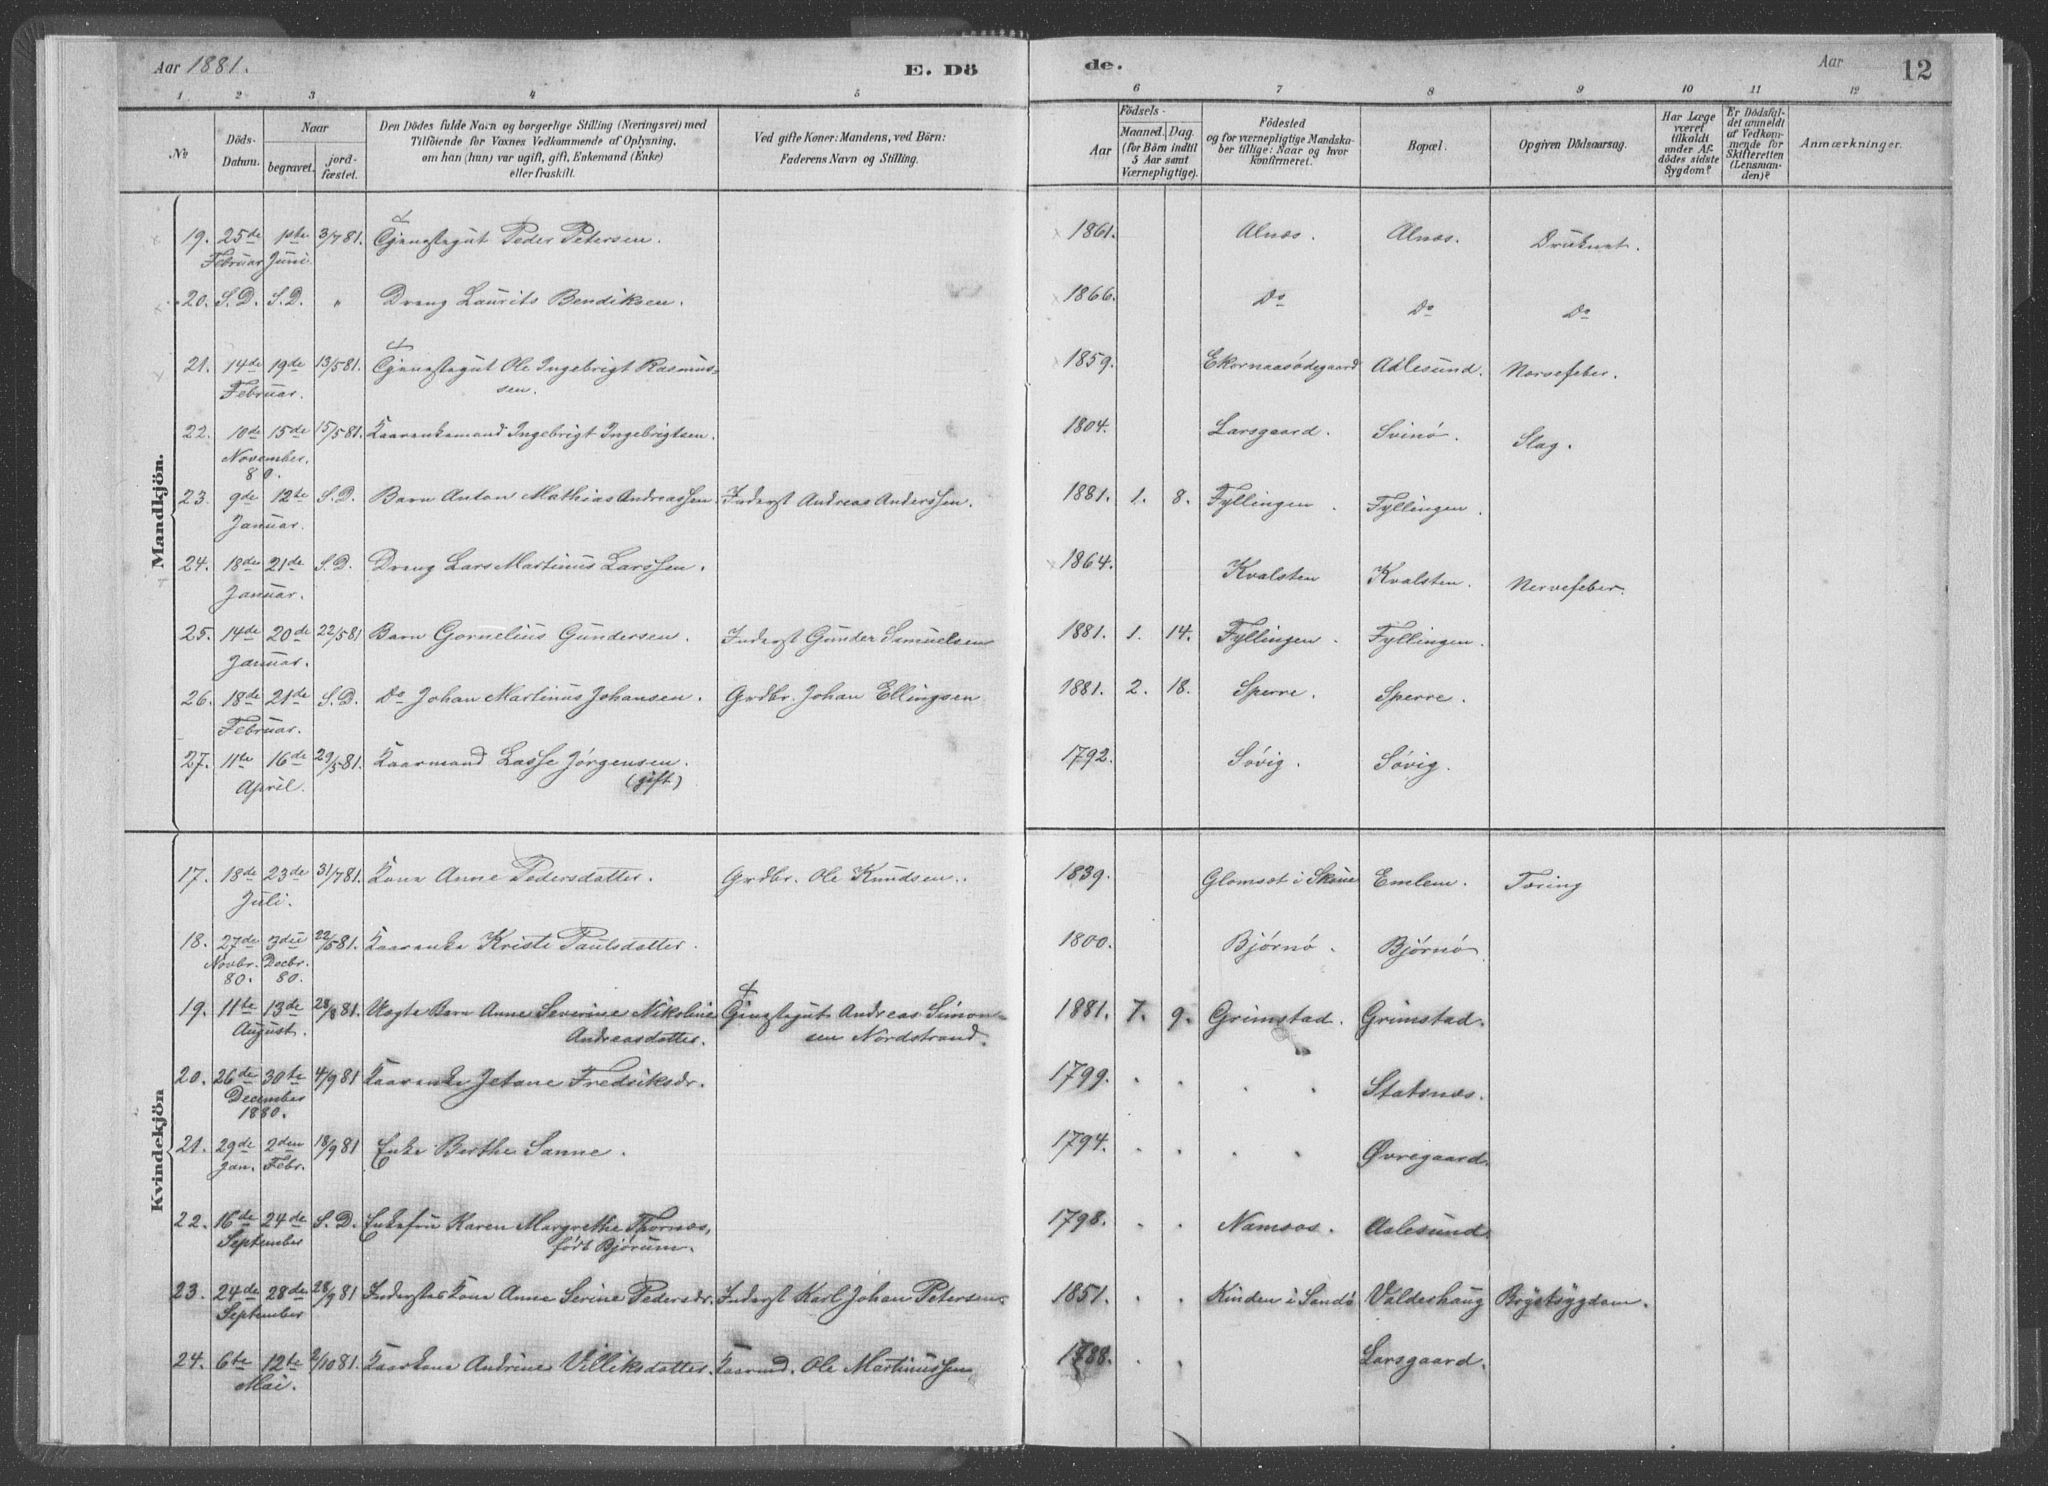 Aar 1881. E. Dö de. Aar 12
1 2 3 4 5 6 7 8 9 10 11 12
No Döds-Datum. Naar begravet. jord-fæstet. Den Dödes fulde Navn og borgerlige Stilling (Næringsvei) med Tilföiende for Voxnes Vedkommende af Oplysning, om han (hun) var ugift, gift, Enkemand (Enke) eller fraskilt. Ved gifte Koner: Mandens, ved Börn: Faderens Navn og Stilling. Aar Födsels- Maaned. Dag. (for Börn indtil 5 Aar samt Værnepligtige). Födested og for værnepligtige Mandska-ber tillige: Naar og hvor Konfirmeret. Bopæl. Opgiven Dödsaarsag. Har Læge været tilkaldt under Af-dödes sidste Sygdom? Er Dödsfal-det anmeldt af Vedkom-mende for Skifteretten (Lensman-den)? Anmærkninger.
Mandkjön.
19. 25de Februar 1ste Juni 3/7 81. Tjenestegut Peder Petersen. 1861. Alnæs. Alnæs. Druknet.
20. S.D. S.D. " Dreng Laurits Bendiksen. 1866. Do Do Do
21. 14de 19de Februar. 13/5 81. Tjenestegut Ole Ingebrigt Rasmus-
sen. 1859. Ekornaasødegaard Aalesund. Nervefeber.
22. 10de 15de November. 80. 15/5 81. Kaarenkemand Ingebrigt Ingebrigtsen. 1804. Larsgaard. Svinø. Slag.
23. 9de 12te Januar. S.D. Barn Anton Mathias Andreassen. Inderst Andreas Anderssen. 1881. 1. 8. Fyllingen. Fyllingen.
24. 18de 21de Januar. S.D. Dreng Lars Martinus Larssen. 1864. Kvalsten Kvalsten. Nervefeber.
25. 14de 20de Januar. 22/5 81 Barn Gornelius Gundersen. Inderst Gunder Samuelsen 1881. 1. 14. Fyllingen. Fyllingen.
26. 18de 21de Februar. S.D. Do Johan Martinus Johansen. Grdbr. Johan Ellingsen 1881. 2. 18. Sperre. Sperre.
27. 11te 16de April. 29/5 81. Kaarmand Lasse Jørgensen. (gift) 1792. Søvig. Søvig.
Kvindekjön
17. 18de 23de Juli. 31/7 81. Kone Anne Pedersdatter. Grdbr. Ole Knudsen. 1839. Glomset i Skoue Emlem. Tæring
18. 27de Novbr. 80. 3die Decbr. 80. 22/5 81. Kaarenke Kriste Paulsdatter. 1800. Bjørnø. Bjørnø
19. 11te 13de August. 28/8 81. Uægte Barn Anne Severine Nikoline Andreasdatter. Tjenestegut Andreas Simon-
sen Nordstrand. 1881. 7. 9. Grimstad. Grimstad.
20. 26de 30te December 1880. 4/9 81 Kaarenke Jetane Fredriksdr. 1799. Statsnæs.
21. 29de Jan. 2den Febr. 18/9 81 Enke Berthe Sanne. 1794. Øvregaard.
22. 16de 24de September S.D. Enkefru Karen Margrethe Thornæs, født Bjørum. 1798. Namsos. Aalesund.
23. 24de 28de September 28/9 81 Inderstes Kone Anne Serine Pedersdr. Inderst Karl Johan Petersen. 1851. Kinden i Sandø Valdeshaug Brystsygdom.
24. 6te 12te Mai. 2/10 81. Kaarkone Andrine Villiksdatter. Kaarmd. Ole Martinussen 1788. Larsgaard.